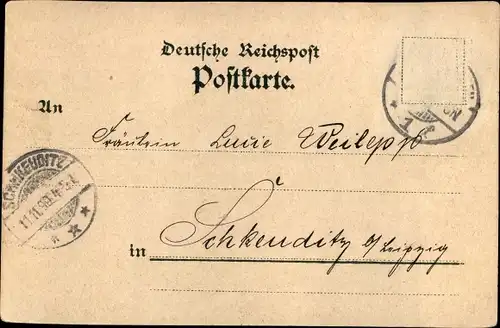 Deutsche Reichspost
Postkarte.
An
Fräulein Lucie Weilepp
in Schkeuditz b/Leipzig
SCHKEUDITZ
11.11.99.